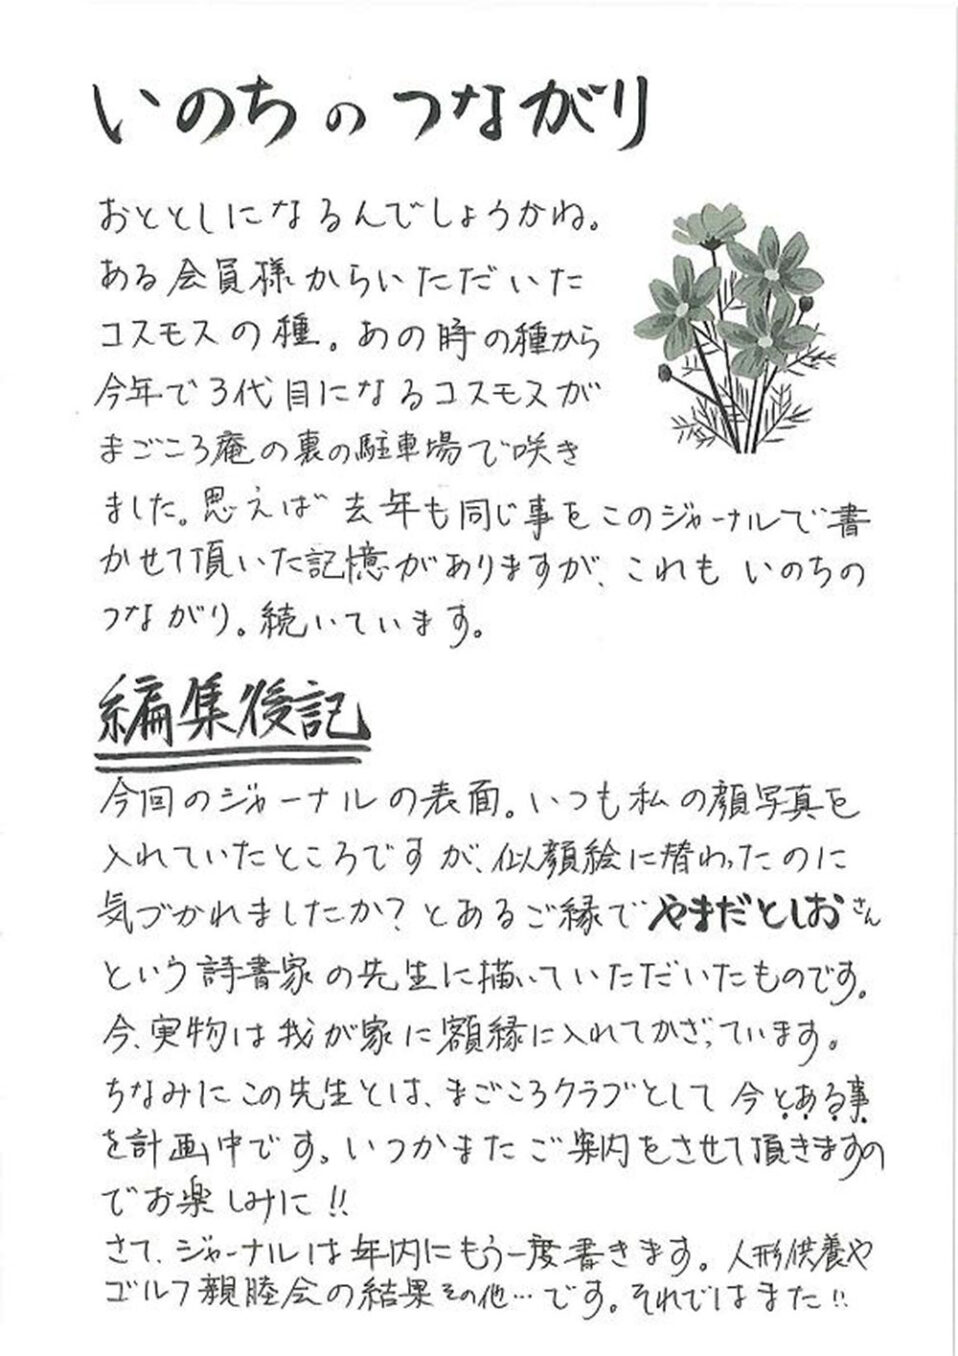 いのちのつながり
おととしになるんでしょうかね。
ある会員様からいただいた
コスモスの種。あの時の種から
今年で3代目になるコスモスが
まごころ庵の裏の駐車場で咲き
ました。思えば去年も同じ事をこのジャーナルで書
かせて頂いた記憶がありますが、これもいのちの
つながり。続いています。
編集後記
今回のジャーナルの表面。いつも私の顔写真を
入れていたところですが、似顔絵に替わったのに
気づかれましたか?とあるご縁でやまだとしおさん
という詩書家の先生に描いていただいたものです。
今、実物は我が家に額縁に入れてかざっています。
ちなみにこの先生とは、まごころクラブとして今とある事
を計画中です。いつかまたご案内をさせて頂きますの
でお楽しみに!!
さて、ジャーナルは年内にもう一度書きます。人形供養や
ゴルフ親睦会の結果その他…です。それではまた!!